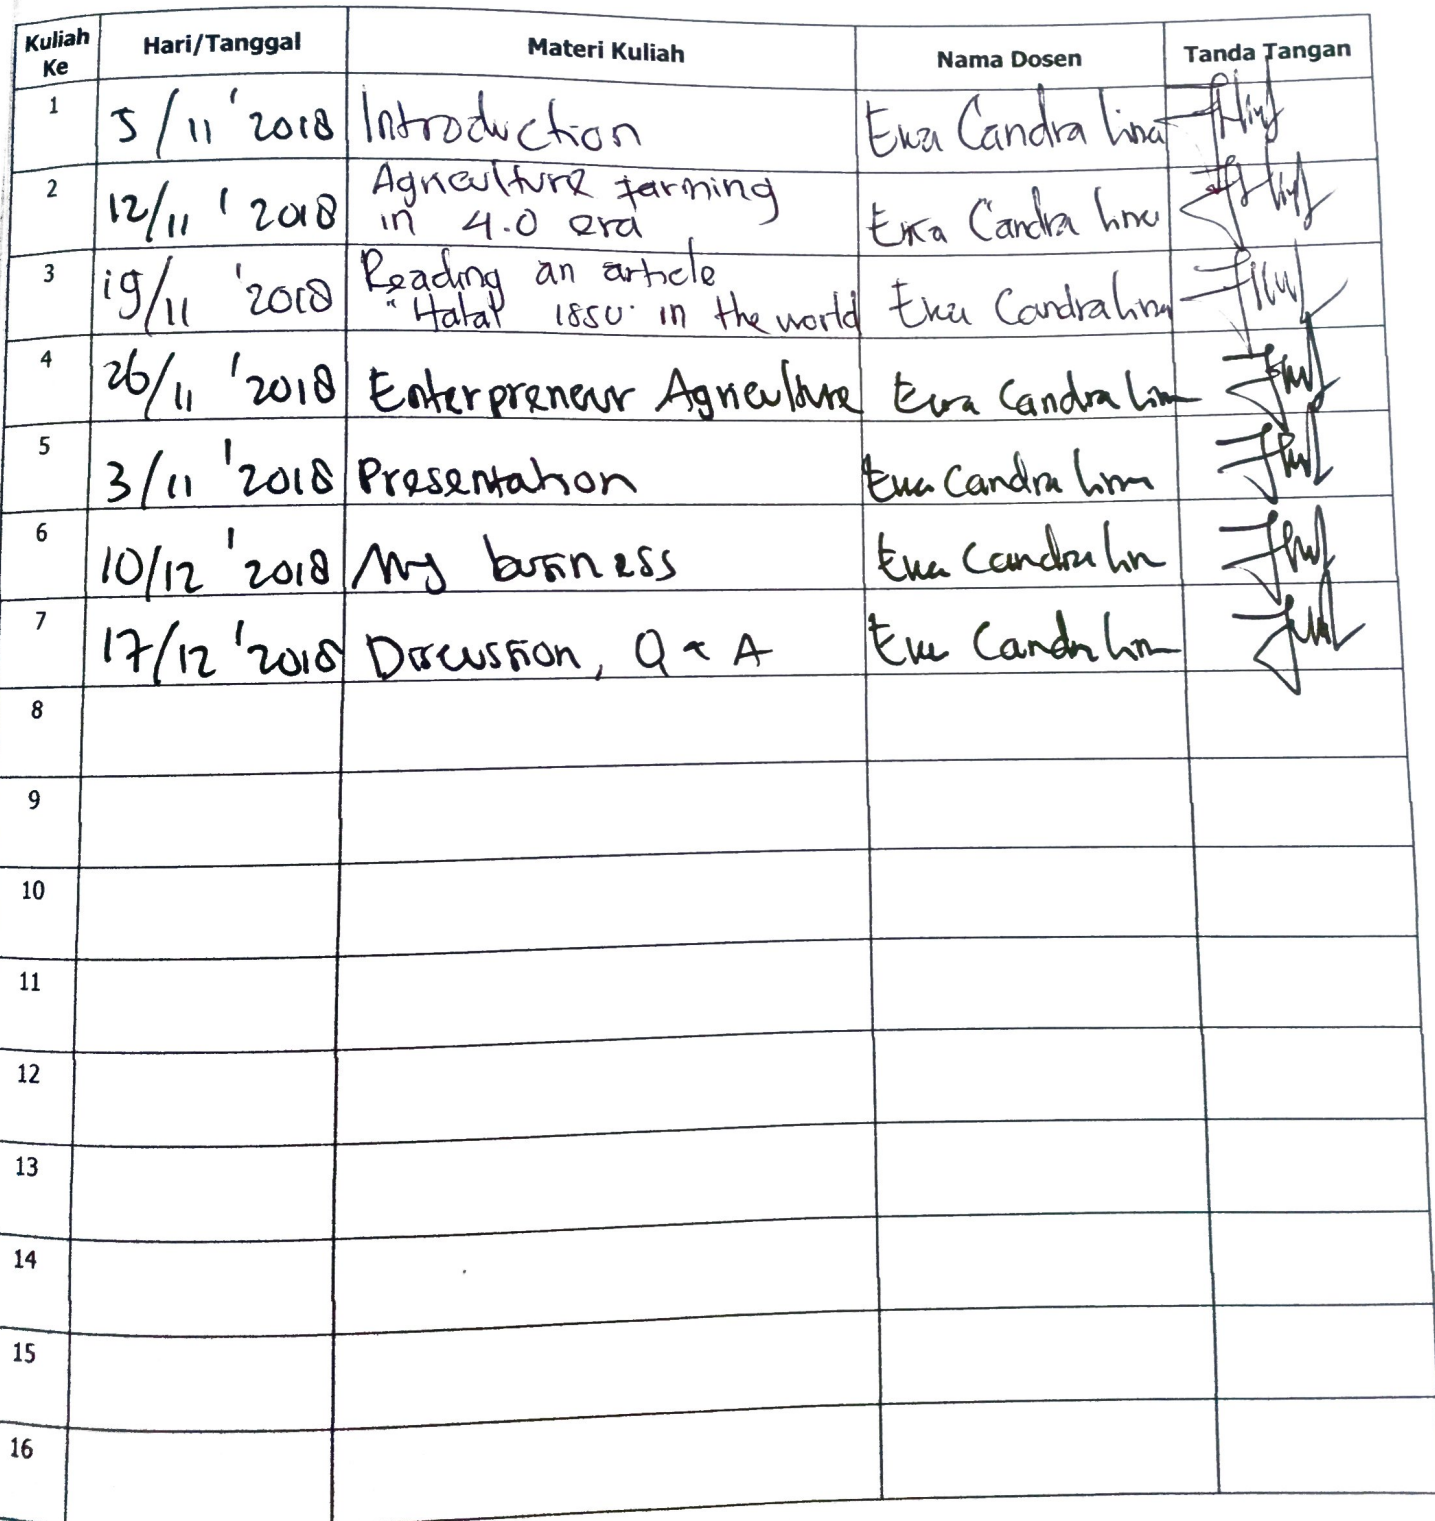 Kuliah Ke Hari/Tanggal Materi Kuliah Nama Dosen Tanda Tangan
1 5/11 '2018 Introduction Eka Candra Lina
2 12/11 '2018 Agriculture farming
in 4.0 era Eka Candra Lina
3 19/11 '2018 Reading an article
"Halal" issu in the world Eka Candra Lina
4 26/11 '2018 Enterpreneur Agriculture Eka Candra Lina
5 3/11 '2018 Presentation Eka Candra Lina
6 10/12 '2018 My business Eka Candra Lin
7 17/12 '2018 Discussion, Q & A Eka Candra Lina
8
9
10
11
12
13
14
15
16